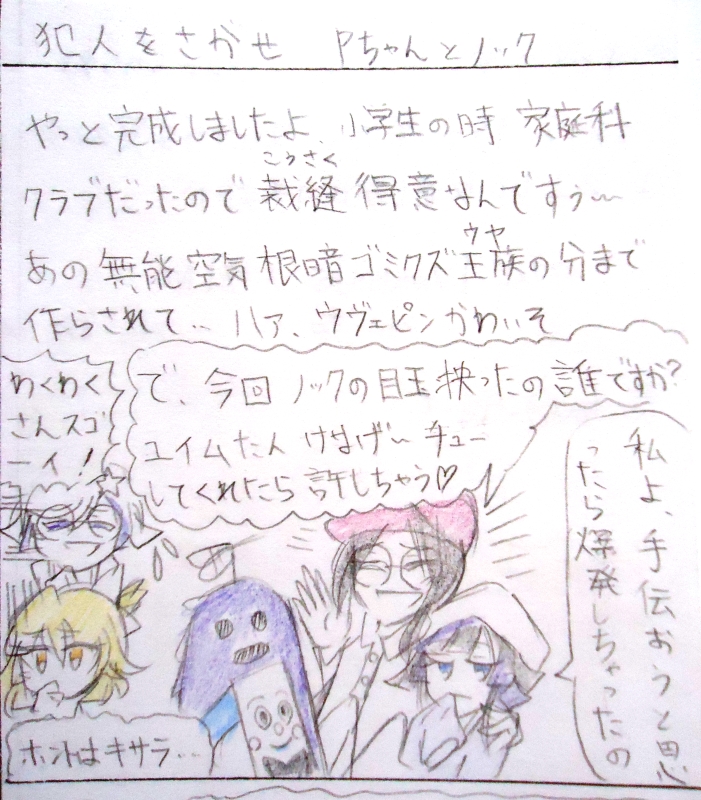 犯人をさがせ Pちゃんとノック
やっと完成しましたよ、小学生の時 家庭科
こうさく
クラブだったので 裁縫 得意なんですぅ〜
ウヤ
あの無能空気根暗ゴミクズ王族の分まで
作らされて… ハァ、ウヴェピンかわいそ
で、今回 ノックの目玉抉ったの誰ですか?
ユイムたん けなげ〜 チュー
してくれたら 許しちゃう♡
わくわく
さんスゴ
ーイ!
私よ、手伝おうと思
ったら爆発しちゃったの
ホントはキサラ…